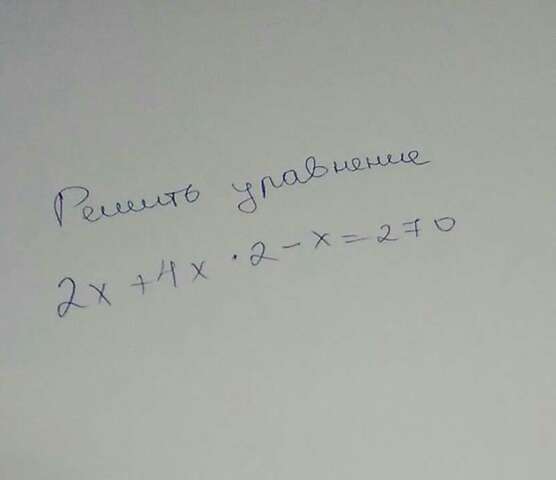 Решить уравнение
2x + 4x · 2 - x = 270